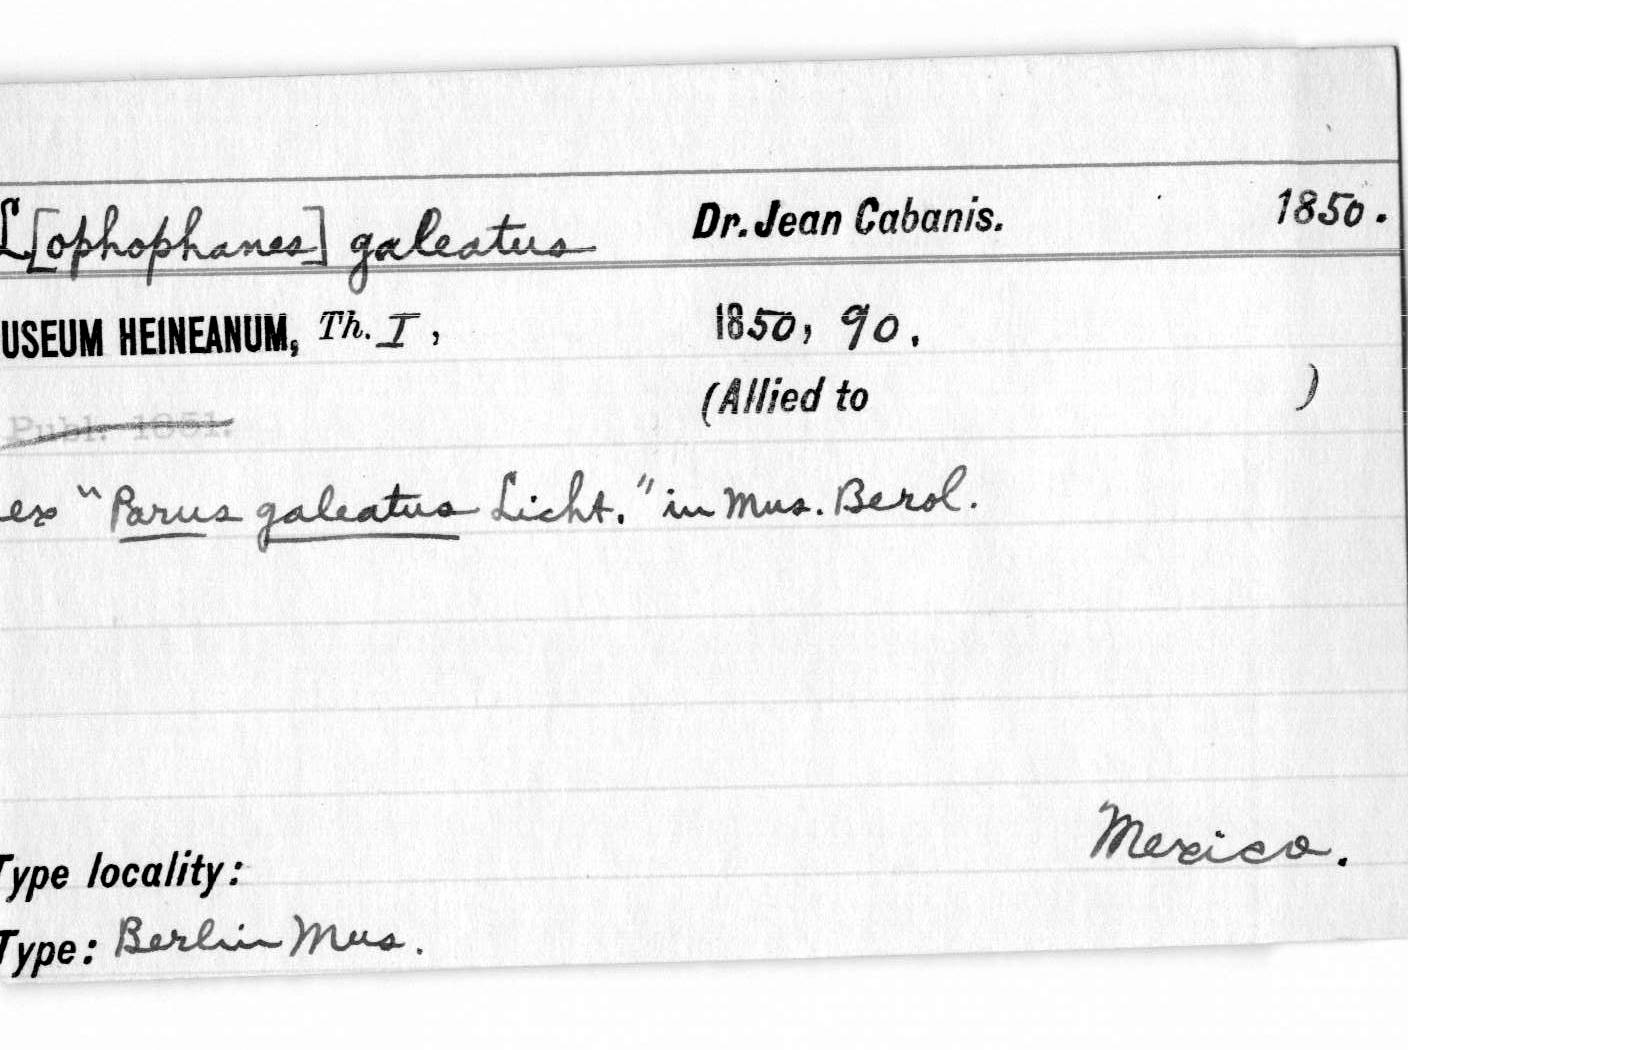 L[ophophanes] galeatus Dr. Jean Cabanis. 1850.
USEUM HEINEANUM, Th. I, 1850, 90.
(Allied to )
Publ. 1851.
ex "Parus galeatus Licht." in Mus. Berol.
Mexico.
Type locality:
Type: Berlin Mus.